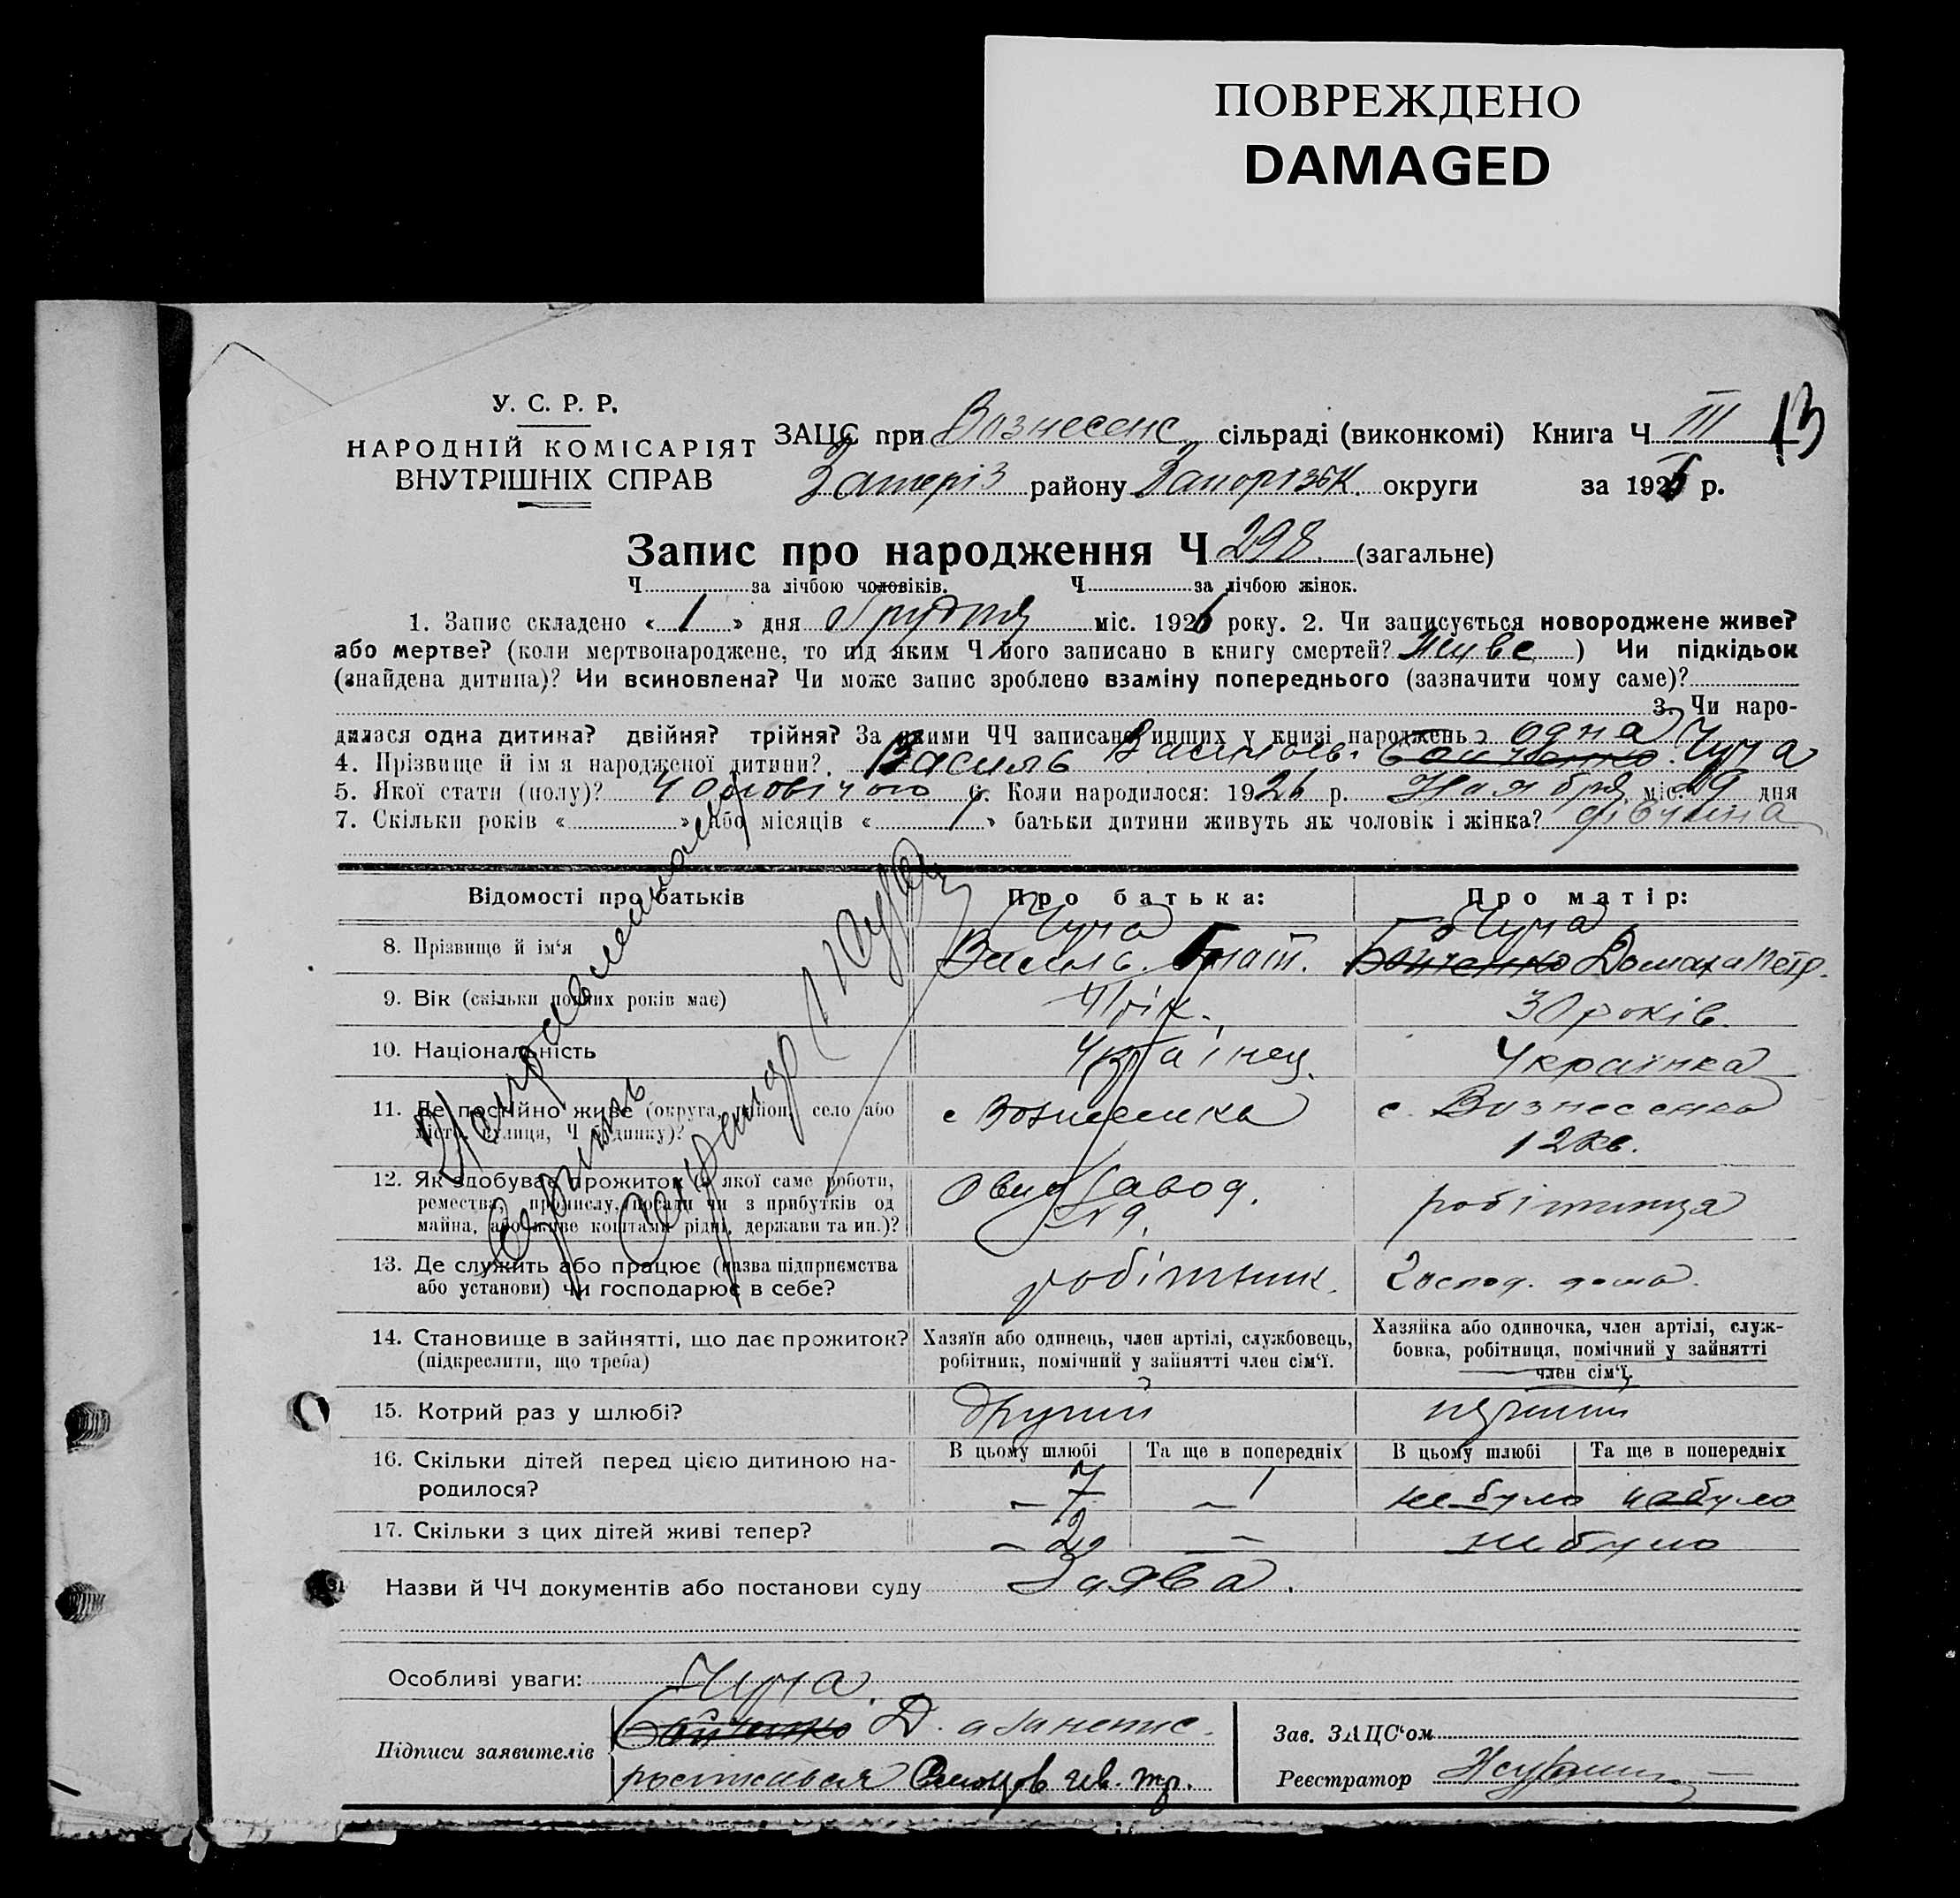 ПОВРЕЖДЕНО
DAMAGED
У. С. Р. Р.
НАРОДНІЙ КОМІСАРІЯТ
ВНУТРІШНІХ СПРАВ
ЗАЦС при Вознесенс сільраді (виконкомі) Книга Ч III 13
Запоріз району Запорізьк. округи за 1926 р.
Запис про народження Ч 298. (загальне)
Ч за лічбою чоловіків. Ч за лічбою жінок.
1. Запис складено « 1 » дня Грудня міс. 1926 року. 2. Чи записується новороджене живе?
або мертве? (коли мертвонароджене, то під яким Ч його записано в книгу смертей? Живе ) Чи підкідьок
(знайдена дитина)? Чи всиновлена? Чи може запис зроблено взаміну попереднього (зазначити чому саме)?
3. Чи наро-
дилася одна дитина? двійня? трійня? За якими ЧЧ записано инших у книзі народжень одна
4. Прізвище й ім я народженої дитини? Василь Васильев. Чуча
5. Якої статі (полу)? Чоловічого 6. Коли народилося: 1926 р. Ноября міс. 29 дня
7. Скільки років « » або місяців « » батьки дитини живуть як чоловік і жінка? дівчина
Відомості про батьків Про батька: Про матір:
8. Прізвище й ім‘я Чуча Василь Гнат. Чуча Бойченко Домаха Петр.
9. Вік (скільки повних років має) 41 рік. 30 років.
10. Національність Українец. Українка
11. Де постійно живе (округа, район, село або
місто, вулиця, Ч будинку)? с Вознесенка с. Вознесенка
12 кв.
12. Як здобуває прожиток (з якої саме роботи,
ремества, промислу, посади чи з прибутків од
майна, або живе коштами рідні, держави та ин.)? завод. робітниця
13. Де служить або працює (назва підприємства
або установи) чи господарює в себе? робітник. Господ. дома.
14. Становище в зайнятті, що дає прожиток?
(підкреслити, що треба)
Хазяїн або одинець, член артілі, службовець,
робітник, помічний у зайнятті член сім‘ї.
Хазяйка або одиночка, член артілі, служ-
бовка, робітниця, помічний у зайнятті
член сім‘ї.
15. Котрий раз у шлюбі? другий первий
16. Скільки дітей перед цією дитиною на-
родилося?
В цьому шлюбі Та ще в попередніх В цьому шлюбі Та ще в попередніх
7 – не було не було
17. Скільки з цих дітей живі тепер? 2 – не було
Назви й ЧЧ документів або постанови суду Заява.
Особливі уваги: Чуча
Підписи заявителів Бойченко Д. а за непис.
Зав. ЗАЦС‘ом
Реєстратор
Направленному
верить